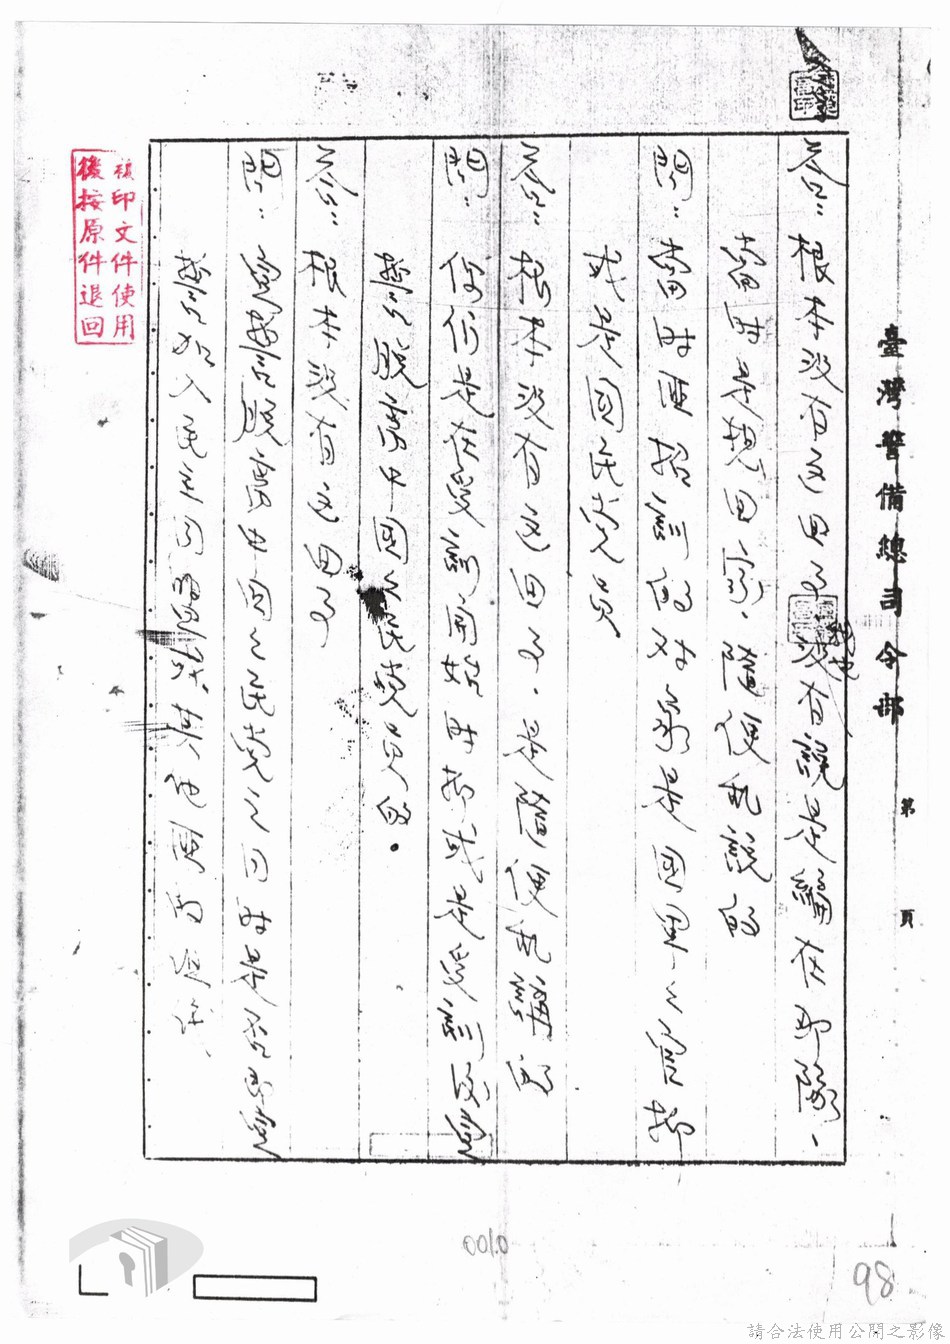 臺灣警備總司令部
第 頁
答：根本沒有這回事，我也沒有說是編在部隊，
當時是想回家，隨便亂說的
問：當時再招訓的對象是国軍之官抑
或是国民党員
答：根本沒有這回事，是隨便亂講的
問：你們是在受訓開始時抑或是受訓後宣
誓脫离中國国民党員的。
答：根本沒有這回事
問：宣誓脫离中国国民党之同時是否亦宣
誓加入民主同盟或其他匪的組織
複印文件使用
後按原件退回
0010
98
請合法使用公開之影像